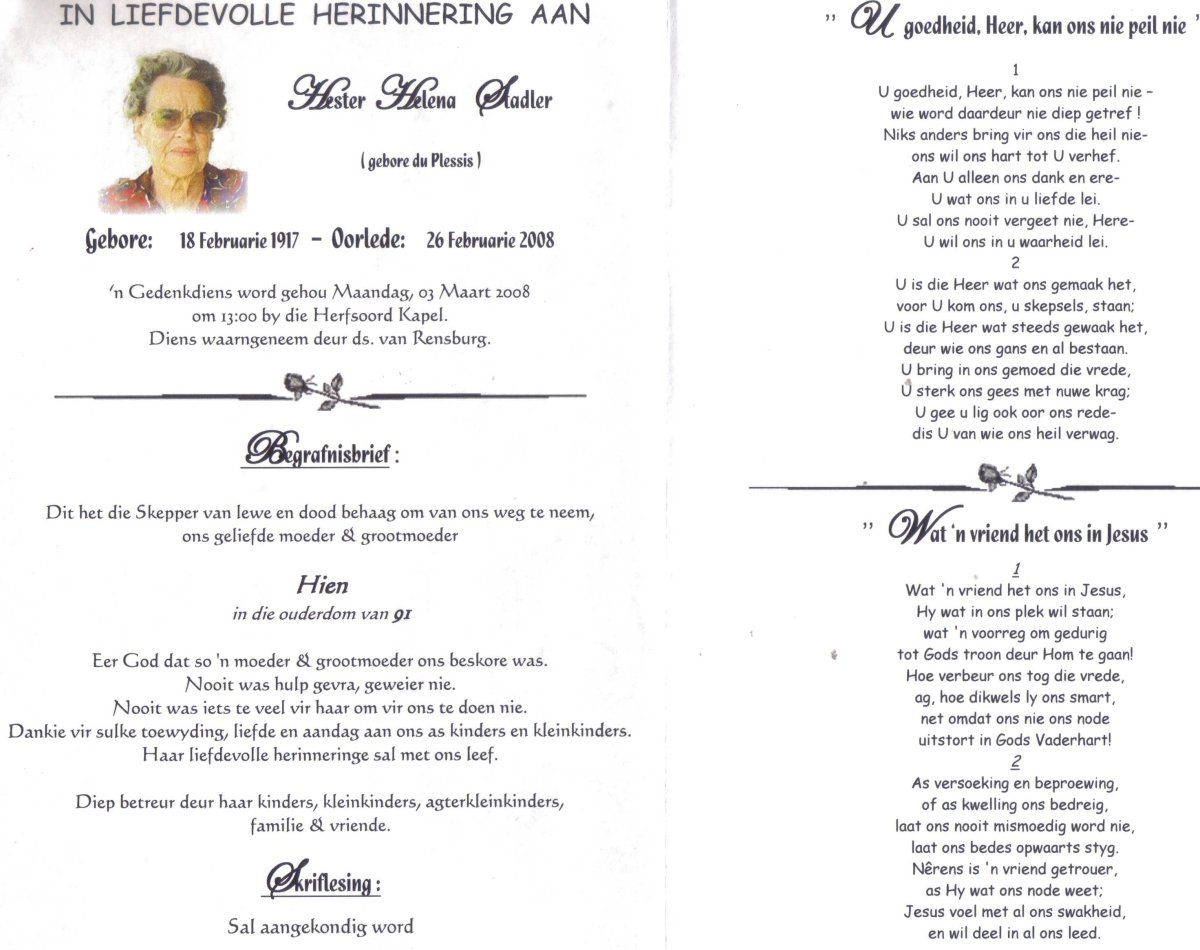 IN LIEFDEVOLLE HERINNERING AAN
Hester Helena Stadler
( gebore du Plessis )
Gebore: 18 Februarie 1917 – Oorlede: 26 Februarie 2008
'n Gedenkdiens word gehou Maandag, 03 Maart 2008
om 13:00 by die Herfsoord Kapel.
Diens waarngeneem deur ds. van Rensburg.
Begrafnisbrief :
Dit het die Skepper van lewe en dood behaag om van ons weg te neem,
ons geliefde moeder & grootmoeder
Hien
in die ouderdom van 91
Eer God dat so 'n moeder & grootmoeder ons beskore was.
Nooit was hulp gevra, geweier nie.
Nooit was iets te veel vir haar om vir ons te doen nie.
Dankie vir sulke toewyding, liefde en aandag aan ons as kinders en kleinkinders.
Haar liefdevolle herinneringe sal met ons leef.
Diep betreur deur haar kinders, kleinkinders, agterkleinkinders,
familie & vriende.
Skriflesing :
Sal aangekondig word
" U goedheid, Heer, kan ons nie peil nie "
1
U goedheid, Heer, kan ons nie peil nie –
wie word daardeur nie diep getref !
Niks anders bring vir ons die heil nie-
ons wil ons hart tot U verhef.
Aan U alleen ons dank en ere-
U wat ons in u liefde lei.
U sal ons nooit vergeet nie, Here-
U wil ons in u waarheid lei.
2
U is die Heer wat ons gemaak het,
voor U kom ons, u skepsels, staan;
U is die Heer wat steeds gewaak het,
deur wie ons gans en al bestaan.
U bring in ons gemoed die vrede,
U sterk ons gees met nuwe krag;
U gee u lig ook oor ons rede-
dis U van wie ons heil verwag.
" Wat 'n vriend het ons in Jesus "
1
Wat 'n vriend het ons in Jesus,
Hy wat in ons plek wil staan;
wat 'n voorreg om gedurig
tot Gods troon deur Hom te gaan!
Hoe verbeur ons tog die vrede,
ag, hoe dikwels ly ons smart,
net omdat ons nie ons node
uitstort in Gods Vaderhart!
2
As versoeking en beproewing,
of as kwelling ons bedreig,
laat ons nooit mismoedig word nie,
laat ons bedes opwaarts styg.
Nêrens is 'n vriend getrouer,
as Hy wat ons node weet;
Jesus voel met al ons swakheid,
en wil deel in al ons leed.